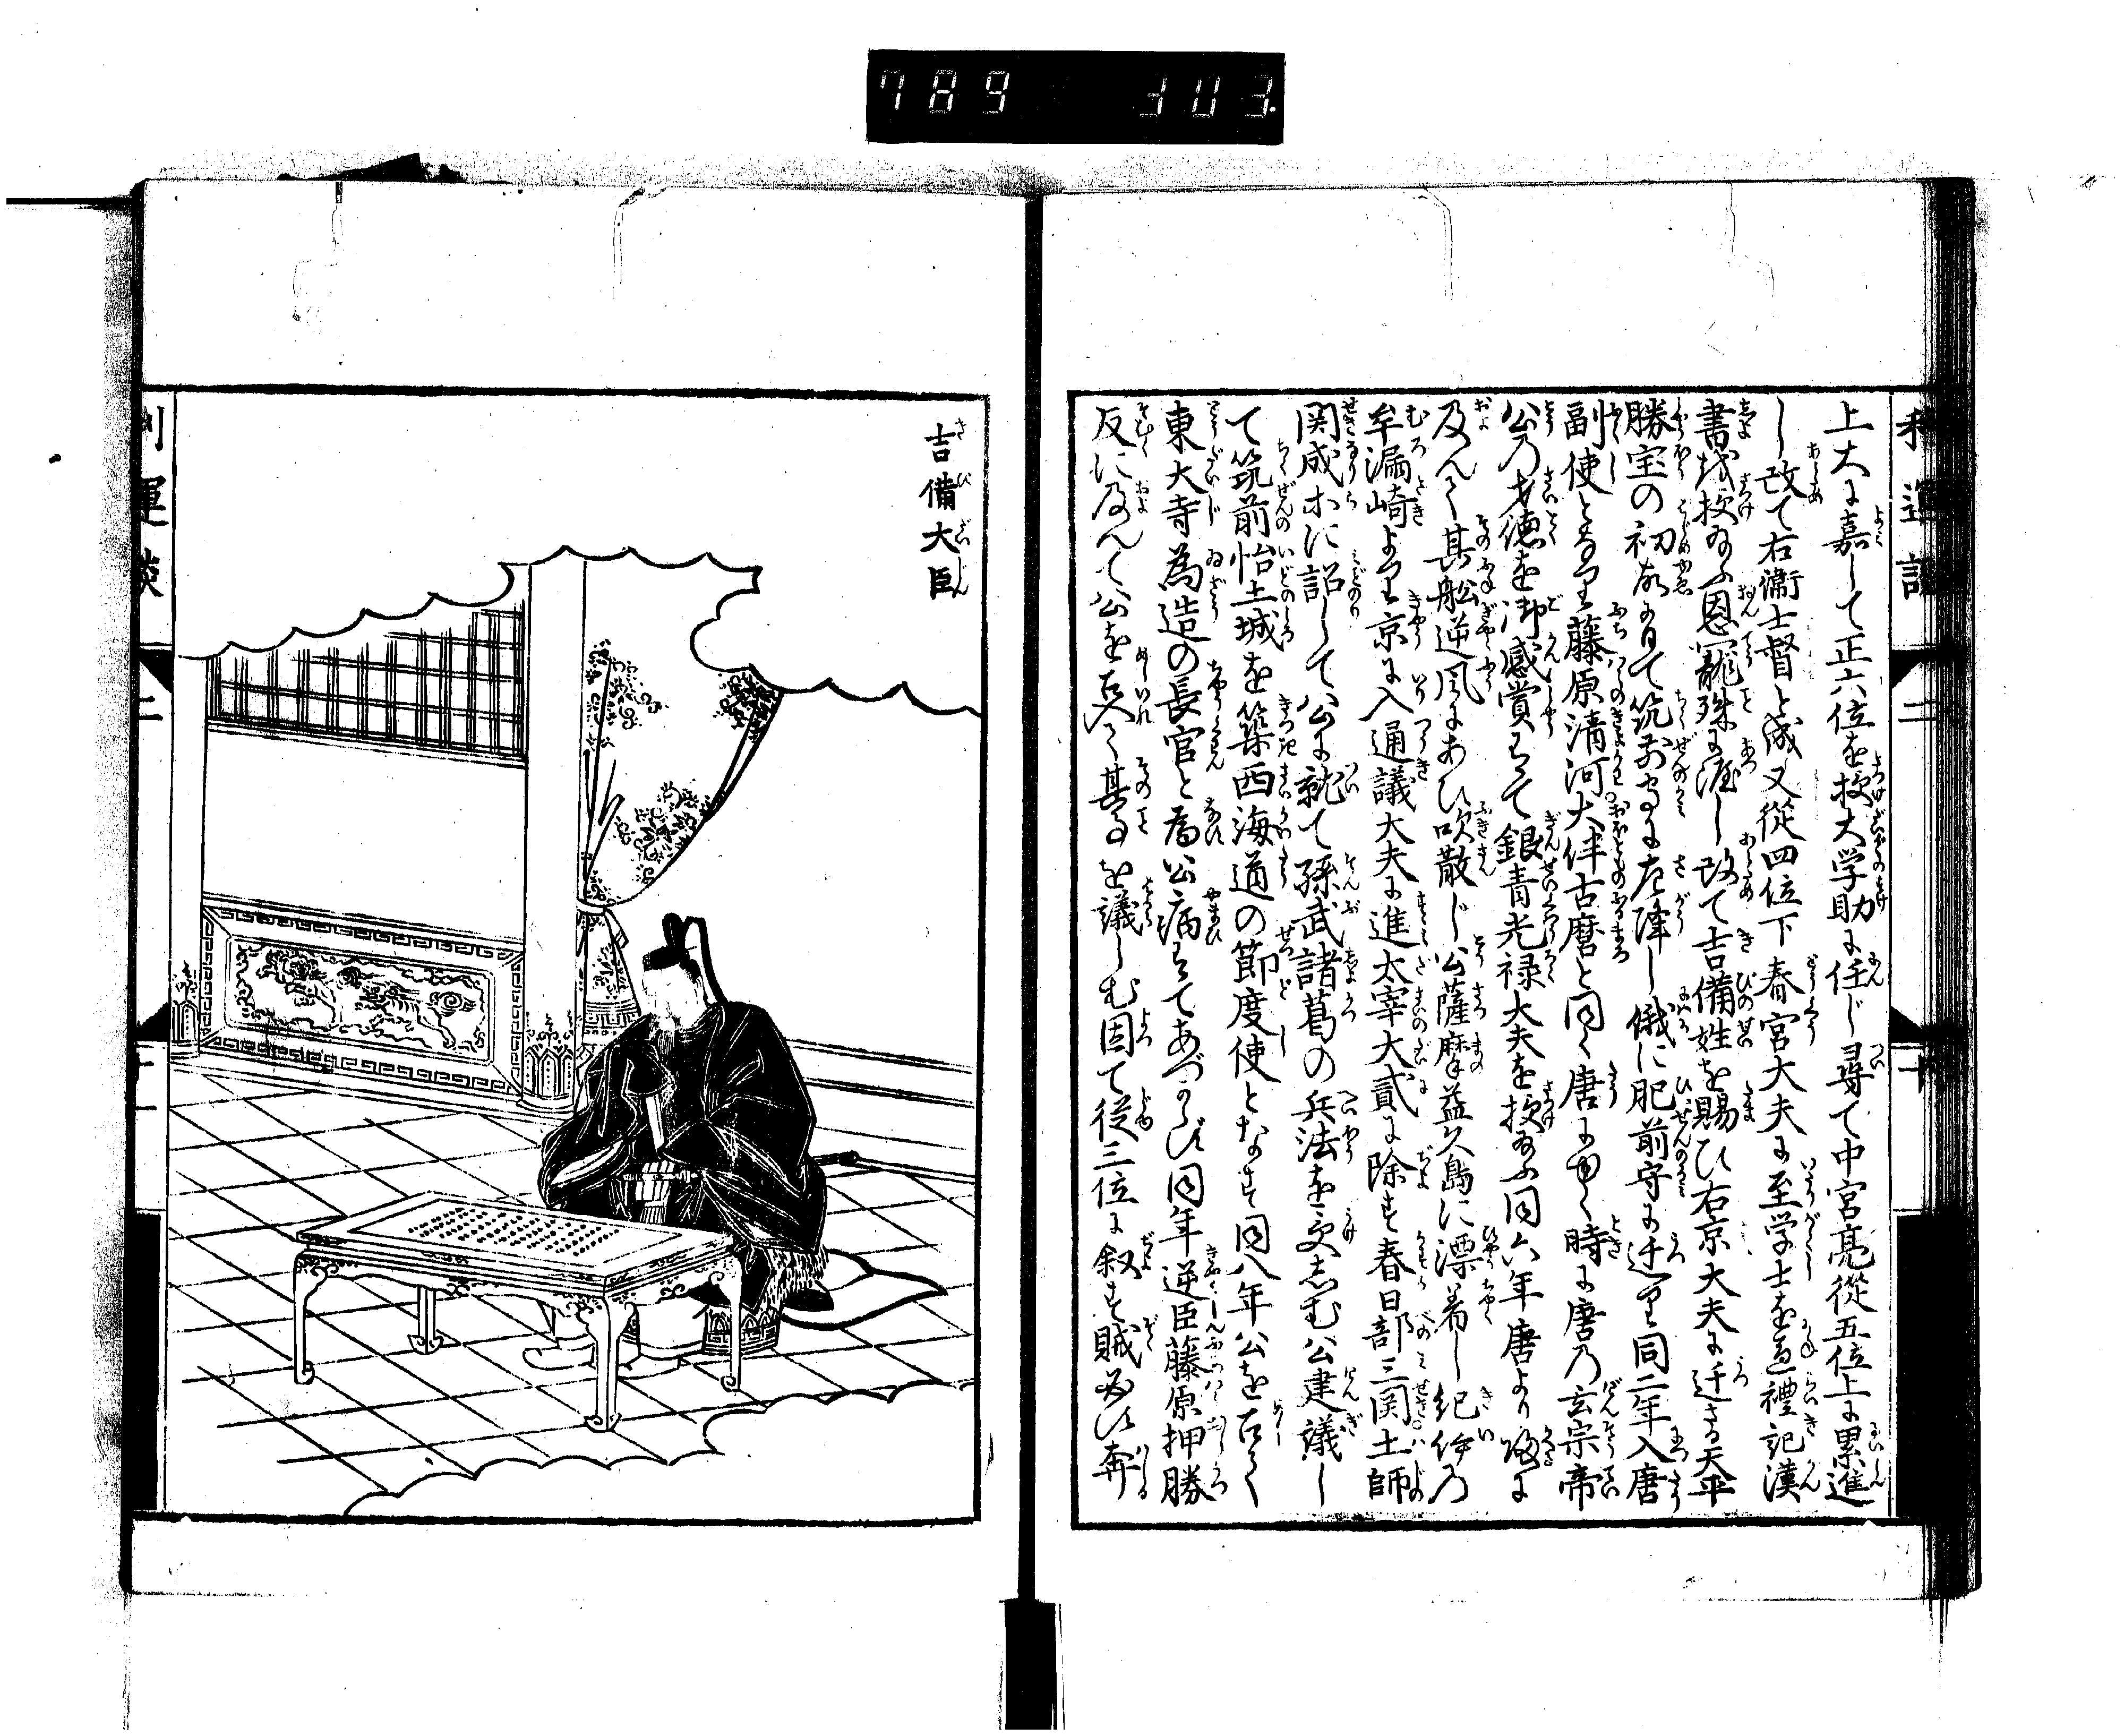 789 303.
上大に嘉して正六位を授大学助に任じ尋て中宮亮従五位上に累進
し改て右衛士督と成又従四位下春宮大夫に至学士を兼禮記漢
書を授給ふ恩寵殊に渥し改て吉備姓を賜ひ右京大夫に迁さる天平
勝宝の初故有て筑前守に左降し俄に肥前守に迁り同二年入唐
副使となり藤原清河大伴古麿と同く唐にゆく時に唐乃玄宗帝
公乃才徳を御感賞有て銀青光禄大夫を授給ふ同六年唐より帰に
及んで其舩逆風にあひ吹散じ公薩摩益久島に漂着し紀伊乃
牟漏崎より京に入通議大夫に進太宰大貳に除す春日部三関土師
関成ホに詔して公に就て孫武諸葛の兵法を受志む公建議し
て筑前怡土城を築西海道の節度使となす同八年公を召て
東大寺為造の長官と為公病有てあづからず同年逆臣藤原押勝
反に及んで公を召入て其事を議しむ因て従三位に叙す賊必ず奔
吉備大臣